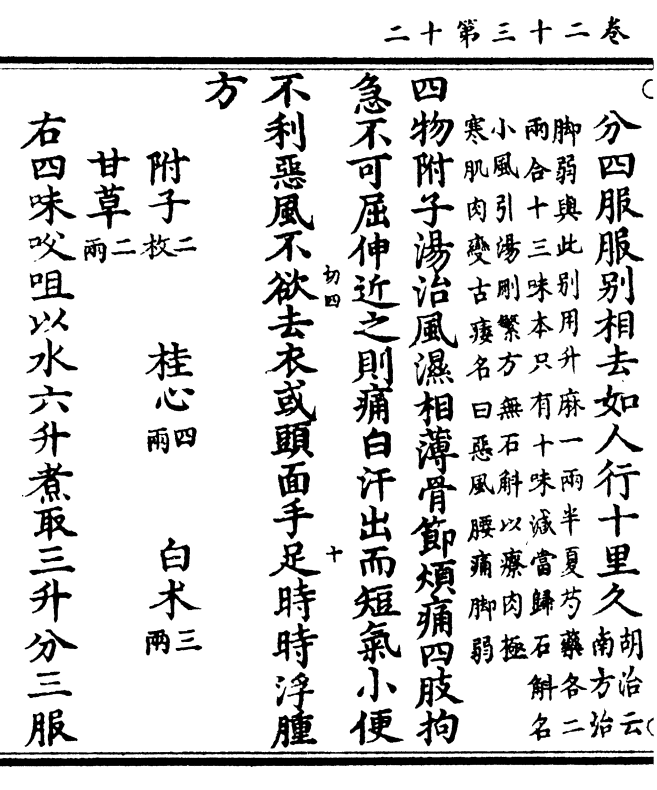 卷二十三第十二
分四服服别相去如人行十里久胡治云
南方治
脚弱與此别用升麻一兩半夏芍藥各二
兩合十三味本只有十味減當歸石斛名
小風引湯刪繁方無石斛以療肉極
寒肌肉變古痿名曰惡風腰痛脚弱
四物附子湯治風濕相薄骨節煩痛四肢拘
急不可屈伸近之則痛白汗出而短氣小便
十
不利惡風不欲去衣或頭面手足時時浮腫
方
附子二枚 桂心四兩 白术三兩
甘草二兩
右四味㕮咀以水六升煮取三升分三服